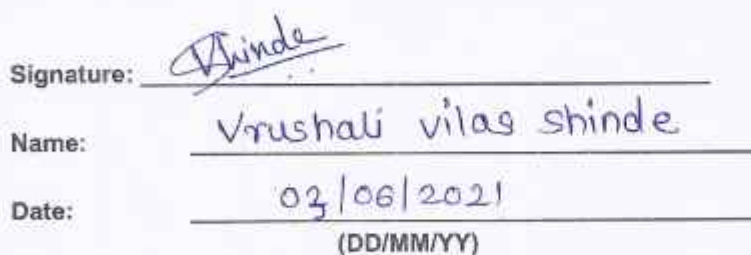 Signature: Vshinde
Name: Vrushali vilas shinde
Date: 03/06/2021
(DD/MM/YY)